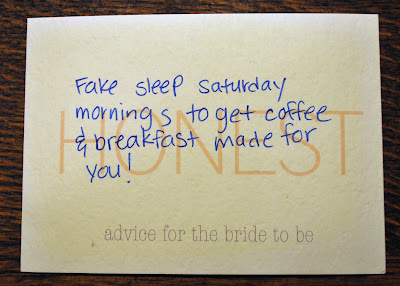 Fake sleep saturday
mornings to get coffee
HONEST
& breakfast made for
you!
advice for the bride to be